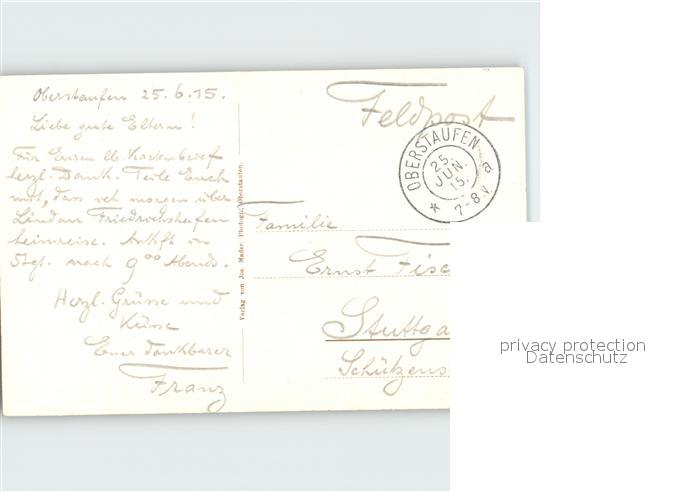 Oberstaufen 25.6.15.
Liebe gute Eltern!
Für Euren lb. Kartenbrief
herzl. Dank. Teile Euch
mit, dass ich morgen über
Lindau Friedrichshafen
heimreise. Ankft in
Stgt. nach 9 00 Abends.
Herzl. Grüsse und
Küsse
Euer dankbarer
Franz
Verlag von Jos. Mader, Photogr., Oberstaufen.
Feldpost
OBERSTAUFEN
25.
JUN.
15.
* 7-8.V. a
Familie
Ernst Fisc
Stuttga
Schützens
privacy protection
Datenschutz